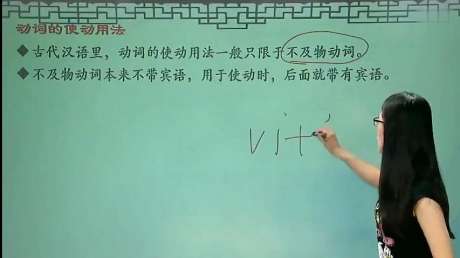 动词的使动用法
◆古代汉语里，动词的使动用法一般只限于不及物动词。
◆不及物动词本来不带宾语，用于使动时，后面就带有宾语。
vit